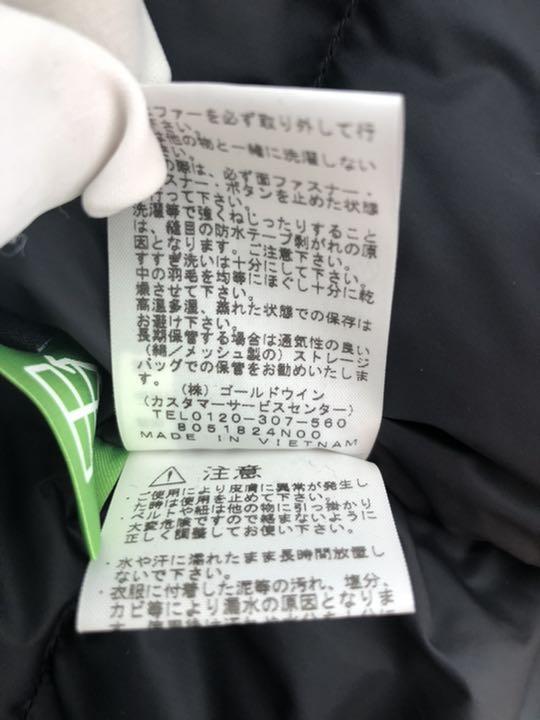 ファーを必ず取り外して行
下さい。
は他の物と一緒に洗濯しない
さい。
の際は、必ず面ファスナー・
スナー・ボタンを止めた状態
行って下さい。
洗濯等で強くねじったりすること
は、縫目の防水テープ剝がれの原
因となります。ご注意下さい。
すすぎ洗いは十分にして下さい。
中の羽毛を均等にほぐし十分に乾
燥させて下さい。
高温多湿、蒸れた状態での保存は
お避け下さい。
長期保管する場合は通気性の良い
(綿/メッシュ製の)ストレージ
バッグでの保管をお勧めいたしま
す。
(株)ゴールドウイン
(カスタマーサービスセンター)
TEL0120-307-560
8051824N00
MADE IN VIETNAM
注意
・ご使用により皮膚に異常が発生し
た時は使用を止めて下さい。
・ベルトや紐は他の物に引っ掛かり
大変危険ですので絡まないように
正しく調整してお使い下さい。
・水や汗に濡れたまま長時間放置し
ないで下さい。
・衣服に付着した泥等の汚れ、塩分、
カビ等により漏水の原因となりま
す